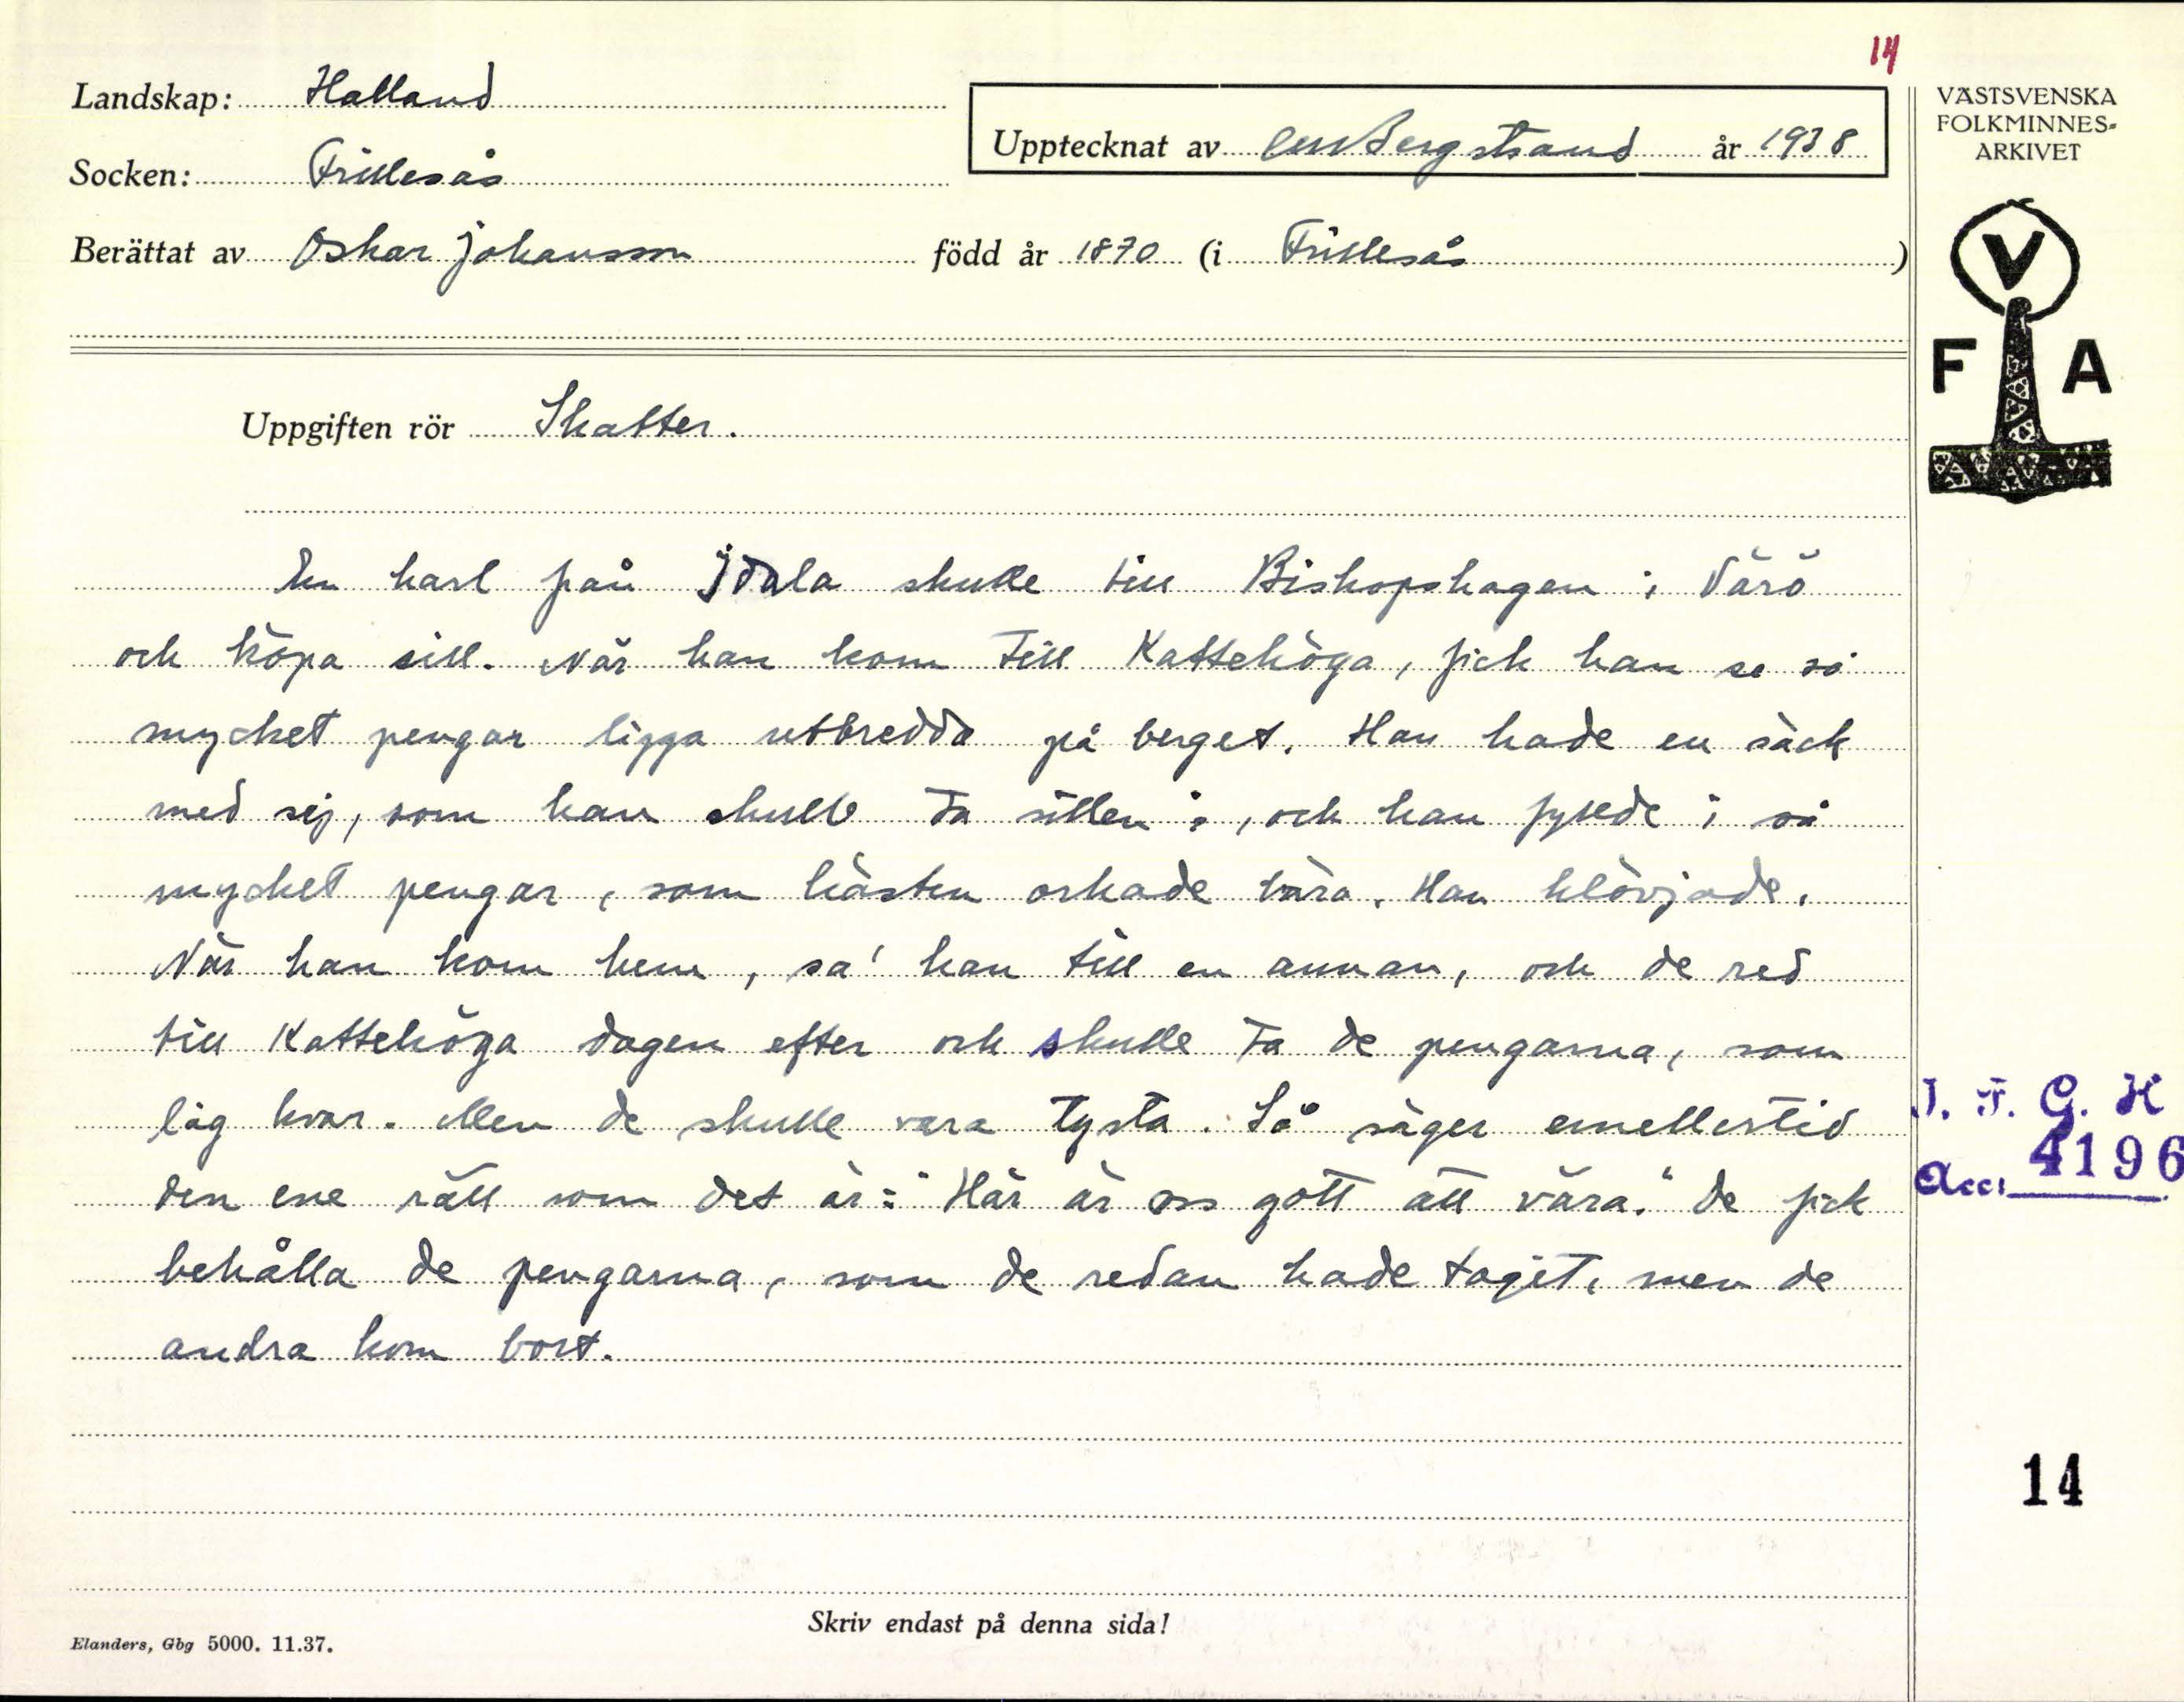 14
Landskap: Halland
Socken: Frillesås
Upptecknat av CM Bergstrand år 1938
Berättat av Oskar Johansson född år 1870 (i Frillesås)
VÄSTSVENSKA
FOLKMINNES-
ARKIVET
V
F A
Uppgiften rör Skatter.
En karl från Idala skulle till Biskopshagen i Värö
och köpa sill. När han kom till Kattehöga, fick han se så
mycket pengar ligga utbredda på berget. Han hade en säck
med sej, som han skulle ta sillen i, och han fyllde i så
mycket pengar, som hästen orkade bära. Han klövjade.
När han kom hem, sa' han till en annan, och de red
till Kattehöga dagen efter och skulle ta de pengarna, som
låg kvar. Men de skulle vara tysta. Så säger emellertid
den ene rätt som det är: "Här är oss gott att vara." De fick
behålla de pengarna, som de redan hade taget, men de
andra kom bort.
I. F. G. H
Acc: 4196
14
Skriv endast på denna sida!
Elanders, Gbg 5000. 11.37.